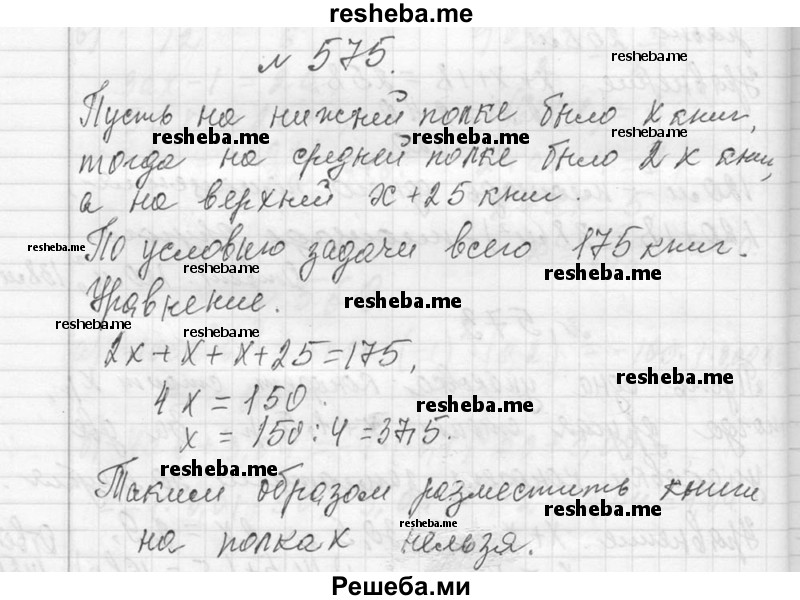 resheba.me
№ 575.
resheba.me
Пусть на нижней полке было x книг,
resheba.me resheba.me resheba.me
тогда на средней полке было 2x книг,
а на верхней x+25 книг.
По условию задачи всего 175 книг.
resheba.me resheba.me resheba.me
Уравнение.
resheba.me
resheba.me resheba.me
2x+x+x+25=175,
resheba.me
4x=150.
resheba.me
x=150:4=37,5.
resheba.me
Таким образом разместить книги
resheba.me
на полках нельзя.
resheba.me
Решеба.ми